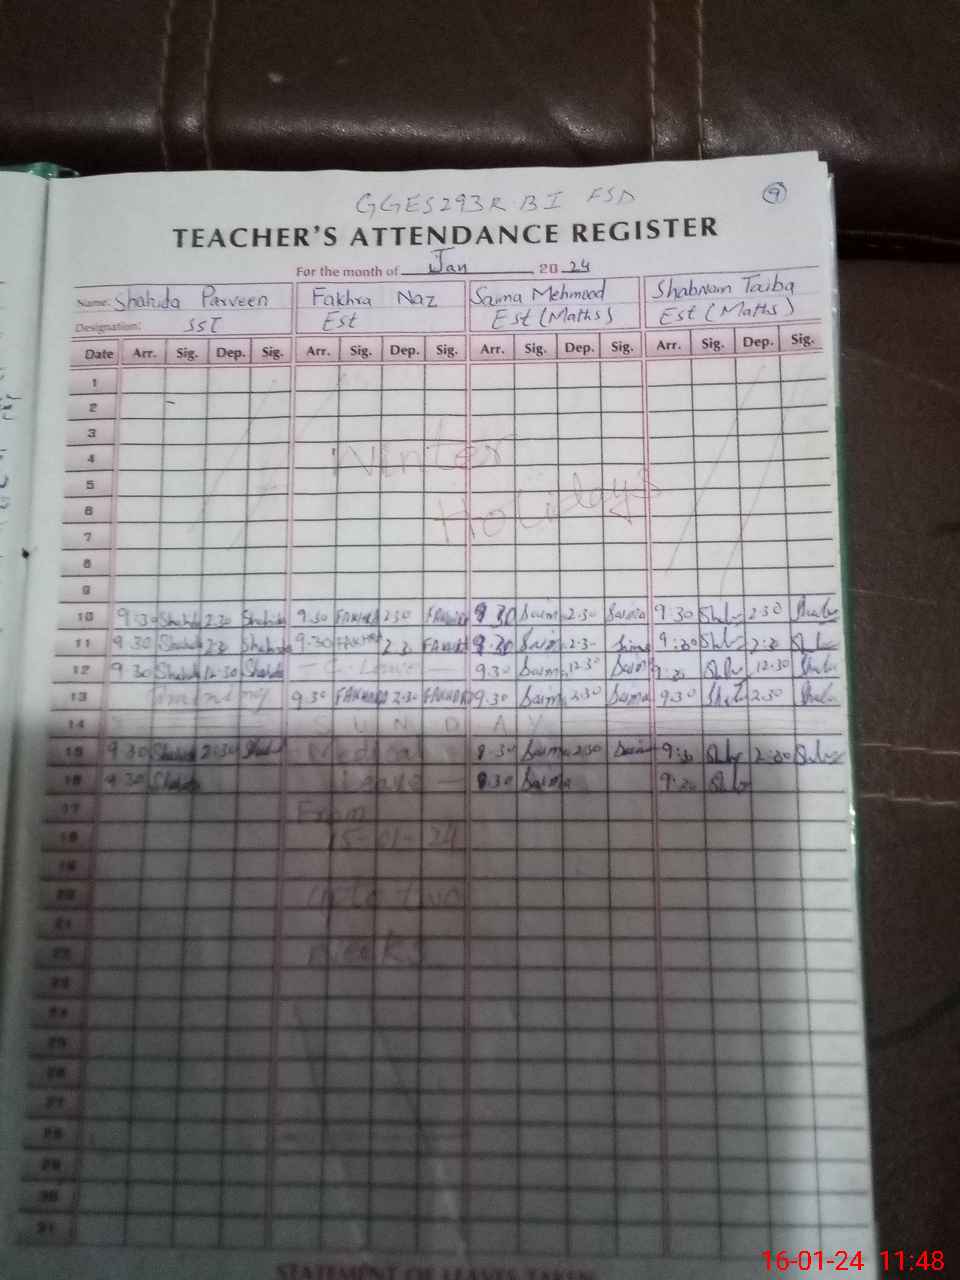 GGES 293 R.B I FSD
9
TEACHER'S ATTENDANCE REGISTER
For the month of Jan 20 24
Name: Shahida Parveen Fakhra Naz Saima Mehmood Shabnam Taiba
Designation: SST Est Est (Maths) Est (Maths)
Date Arr. Sig. Dep. Sig. Arr. Sig. Dep. Sig. Arr. Sig. Dep. Sig. Arr. Sig. Dep. Sig.
1
2
3
4 Winter
5
6 Holidays
7
8
9
10 9:30 Shahida 2:30 Shahida 9:30 FAKHRA 2:30 FAKHRA 9:30 Saima 2:30 Saima 9:30 2:30
11 9:30 Shahida 2:30 Shahida 9:30 FAKHRA 2:30 FAKHRA 9:30 Saima 2:30 Saima 9:30 2:30
12 9:30 Shahida 12:30 Shahida - C. Leave - 9:30 Saima 12:30 Saima 9:30 12:30
13 9:30 FAKHRA 2:30 FAKHRA 9:30 Saima 2:30 Saima 9:30 2:30
14 SUNDAY
15 9:30 Shahida 2:30 Shahida Medical 9:30 Saima 2:30 Saima 9:30 2:30
16 9:30 Shahida Leave - 9:30 Saima 9:30
17 From
18 15-01-24
19
20 upto two
21
22 weeks
23
24
25
26
27
28
29
30
31
STATEMENT OF LEAVE TAKEN
16-01-24 11:48